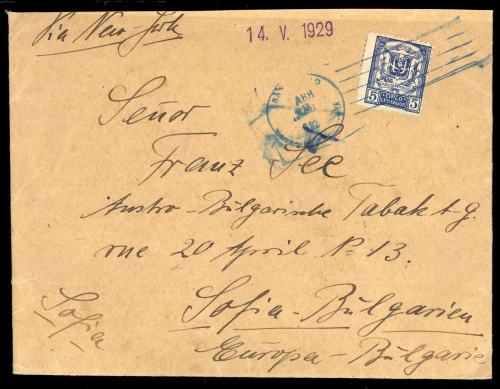 Via New-York
14. V. 1929
5 CINCO CENTAVOS 5
ABR
Señor
Franz See
Austro-Bulgarische Tabak t-g.
rue 20 April № 13.
Sofia-Bulgarien
Europa-Bulgarie
Sofia